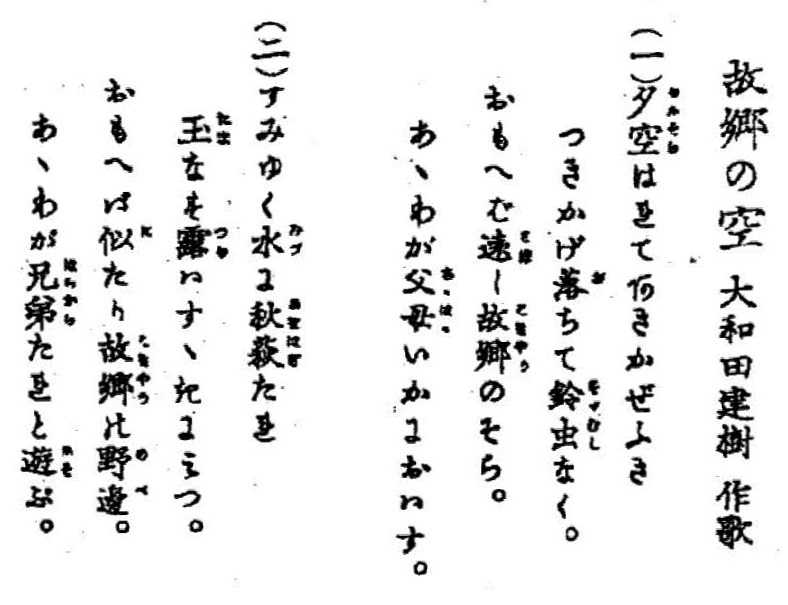 故郷の空 大和田建樹 作歌
(一)夕空はれてあきかぜふき
つきかげ落ちて鈴虫なく。
おもへば遠し故郷のそら。
あゝわが父母いかにおはす。
(二)すみゆく水に秋萩たれ
玉なす露はすゝきにみつ。
おもへば似たり故郷の野邊。
あゝわが兄弟たれと遊ぶ。